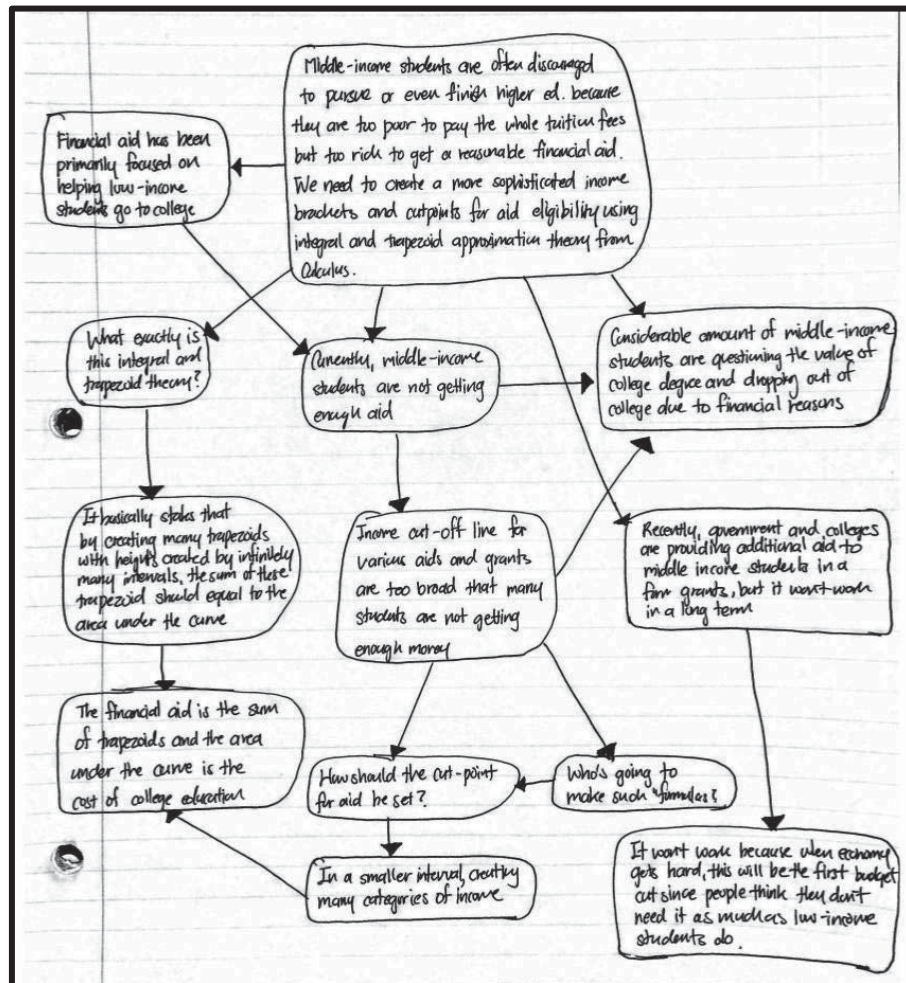 Middle-income students are often discouraged
to pursue or even finish higher ed. because
they are too poor to pay the whole tuition fees
but too rich to get a reasonable financial aid.
We need to create a more sophisticated income
brackets and cutpoints for aid eligibility using
integral and trapezoid approximation theory from
Calculus.
Financial aid has been
primarily focused on
helping low-income
students go to college
What exactly is
this integral and
trapezoid theory?
Currently, middle-income
students are not getting
enough aid
Considerable amount of middle-income
students are questioning the value of
college degree and dropping out of
college due to financial reasons
It basically states that
by creating many trapezoids
with heights created by infinitely
many intervals, the sum of these
trapezoid should equal to the
area under the curve
Income cut-off line for
various aids and grants
are too broad that many
students are not getting
enough money
Recently, government and colleges
are providing additional aid to
middle income students in a
form grants, but it wont work
in a long term
The financial aid is the sum
of trapezoids and the area
under the curve is the
cost of college education
How should the cut-point
for aid be set?
Who's going to
make such "formulas?
In a smaller interval, creating
many categories of income
It wont work because when economy
gets hard, this will be the first budget
cut since people think they don't
need it as much as low-income
students do.